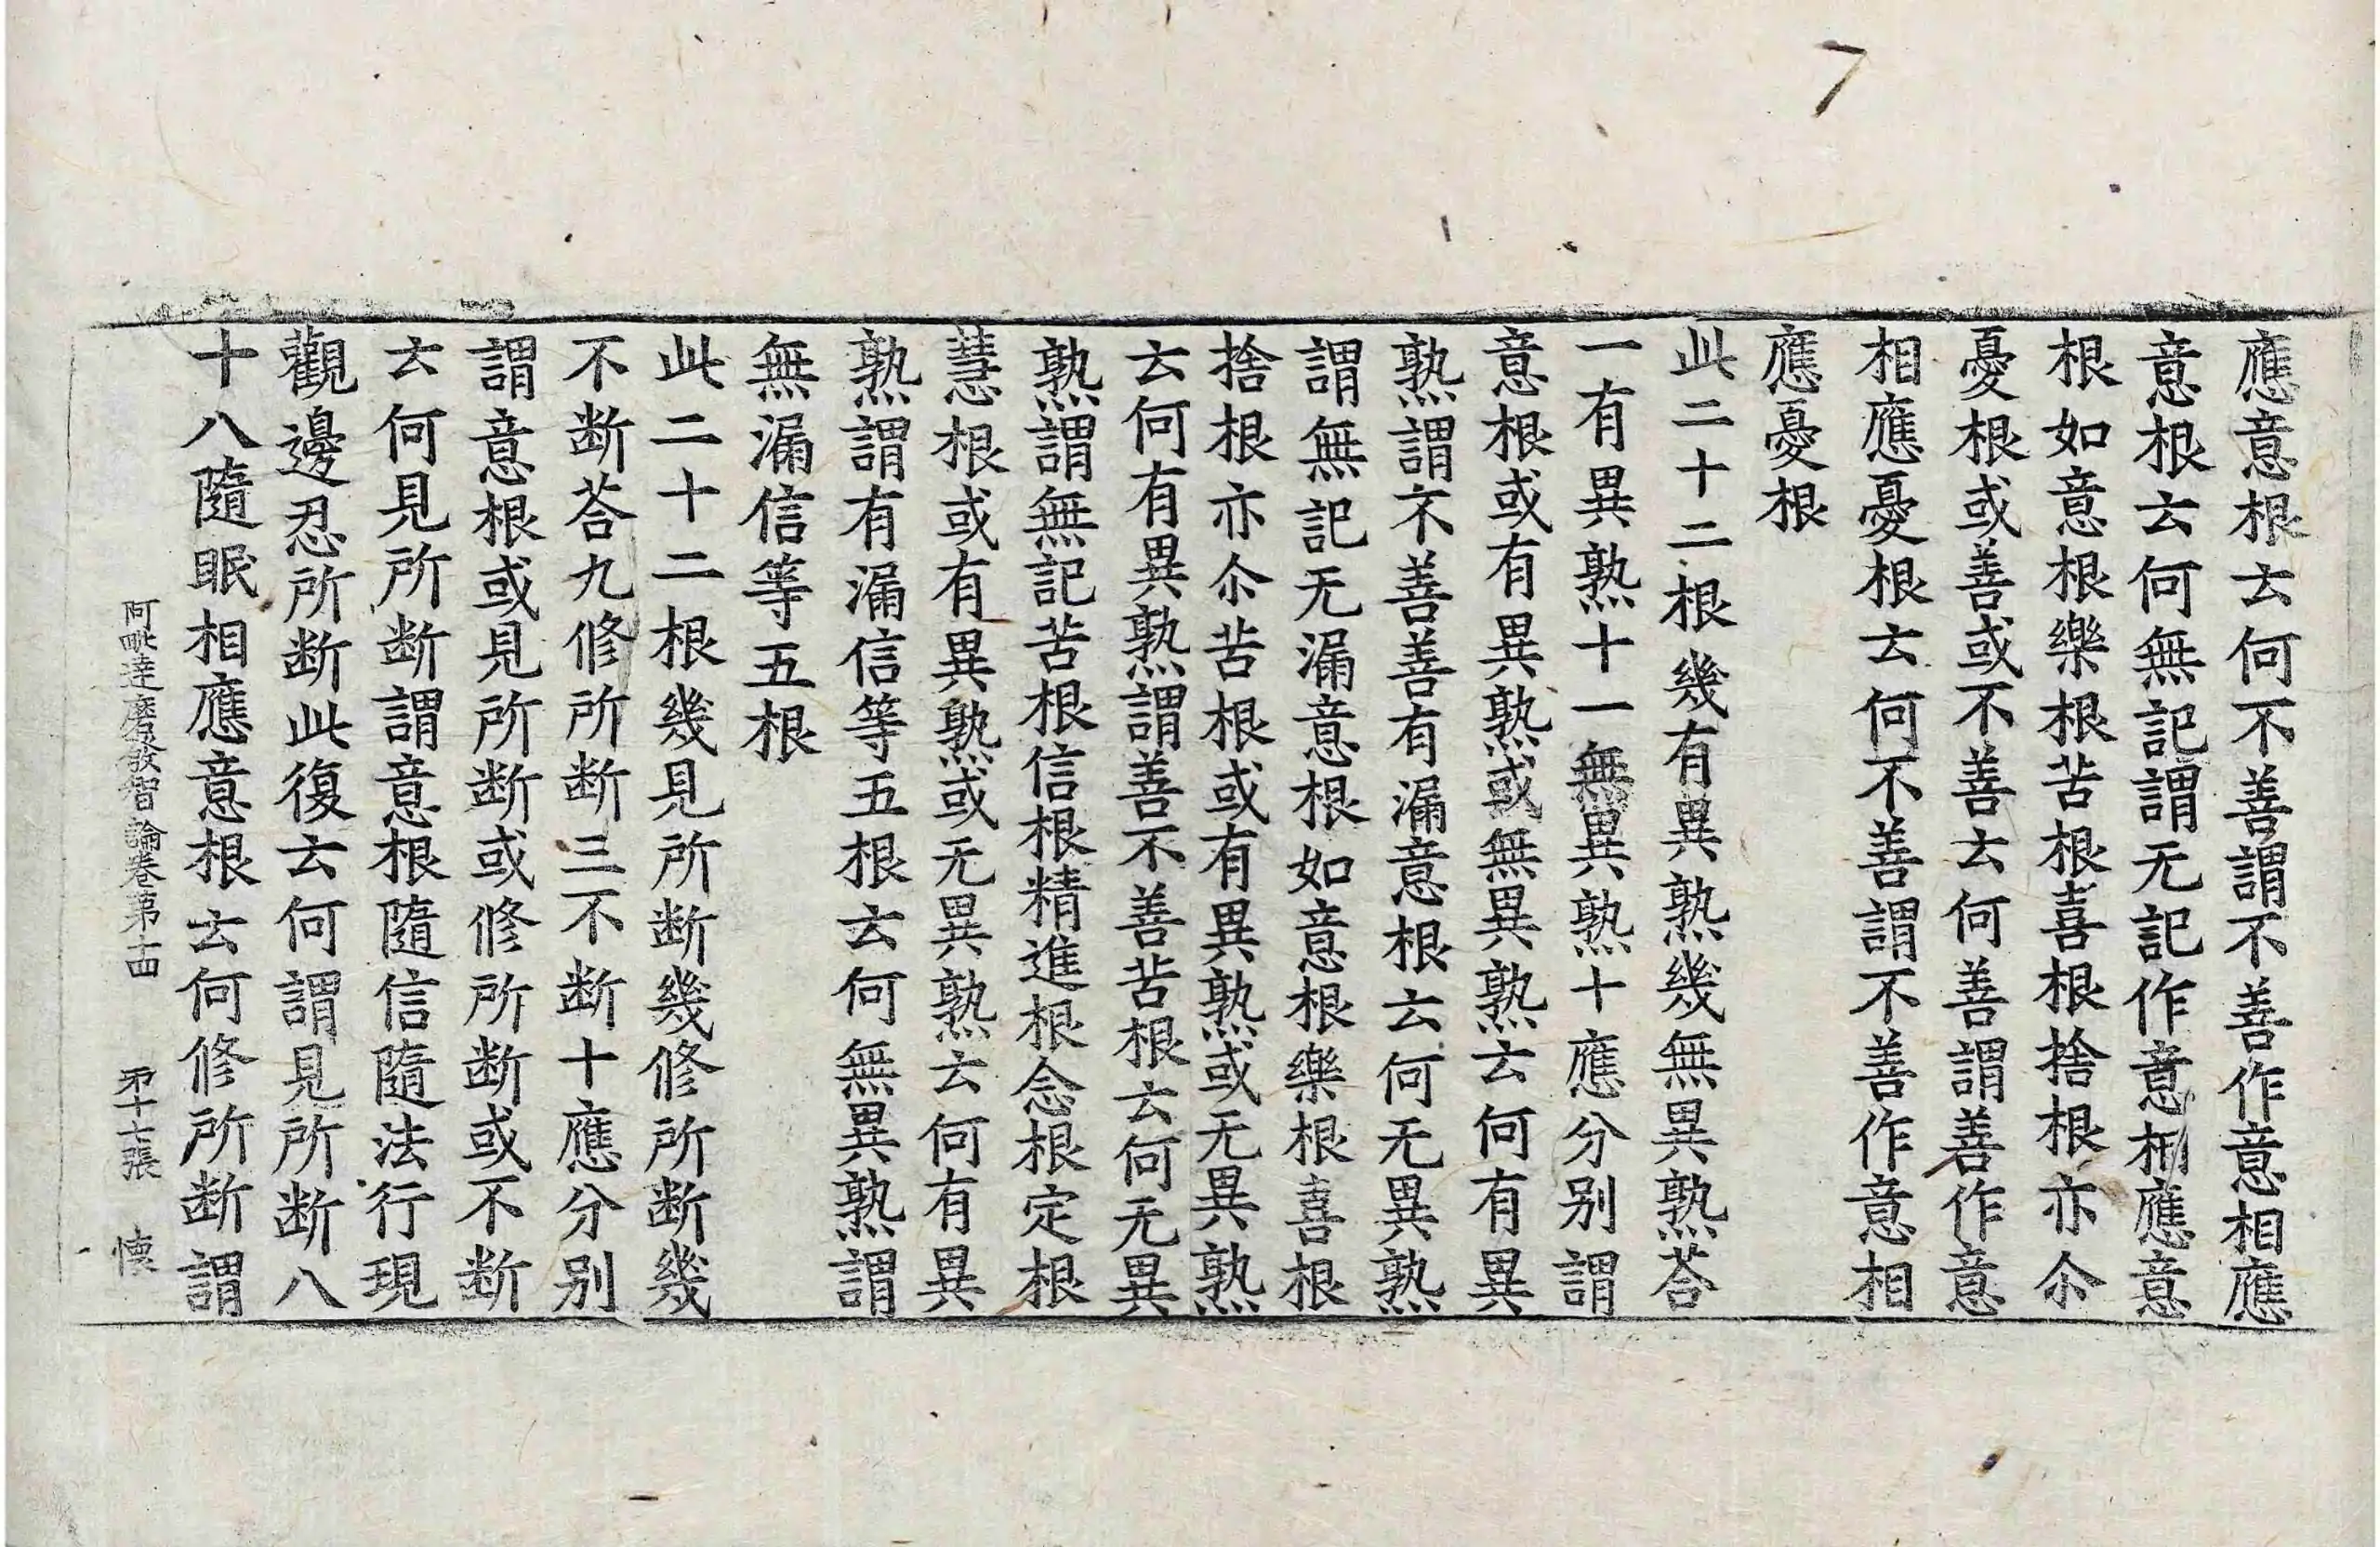 7
應意根云何不善謂不善作意相應
意根云何無記謂无記作意相應意
根如意根樂根苦根喜根捨根亦尒
憂根或善或不善云何善謂善作意
相應憂根云何不善謂不善作意相
應憂根
此二十二根幾有異熟幾無異熟荅
一有異熟十一無異熟十應分别謂
意根或有異熟或無異熟云何有異
熟謂不善善有漏意根云何无異熟
謂無記无漏意根如意根樂根喜根
捨根亦尒苦根或有異熟或无異熟
云何有異熟謂善不善苦根云何无異
熟謂無記苦根信根精進根念根定根
慧根或有異熟或无異熟云何有異
熟謂有漏信等五根云何無異熟謂
無漏信等五根
此二十二根幾見所断幾修所断幾
不断荅九修所断三不断十應分别
謂意根或見所断或修所断或不断
云何見所断謂意根隨信隨法行現
觀邊忍所断此復云何謂見所断八
十八隨眠相應意根云何修所断謂
阿毗達磨發智論卷第十四 第十七張 懐